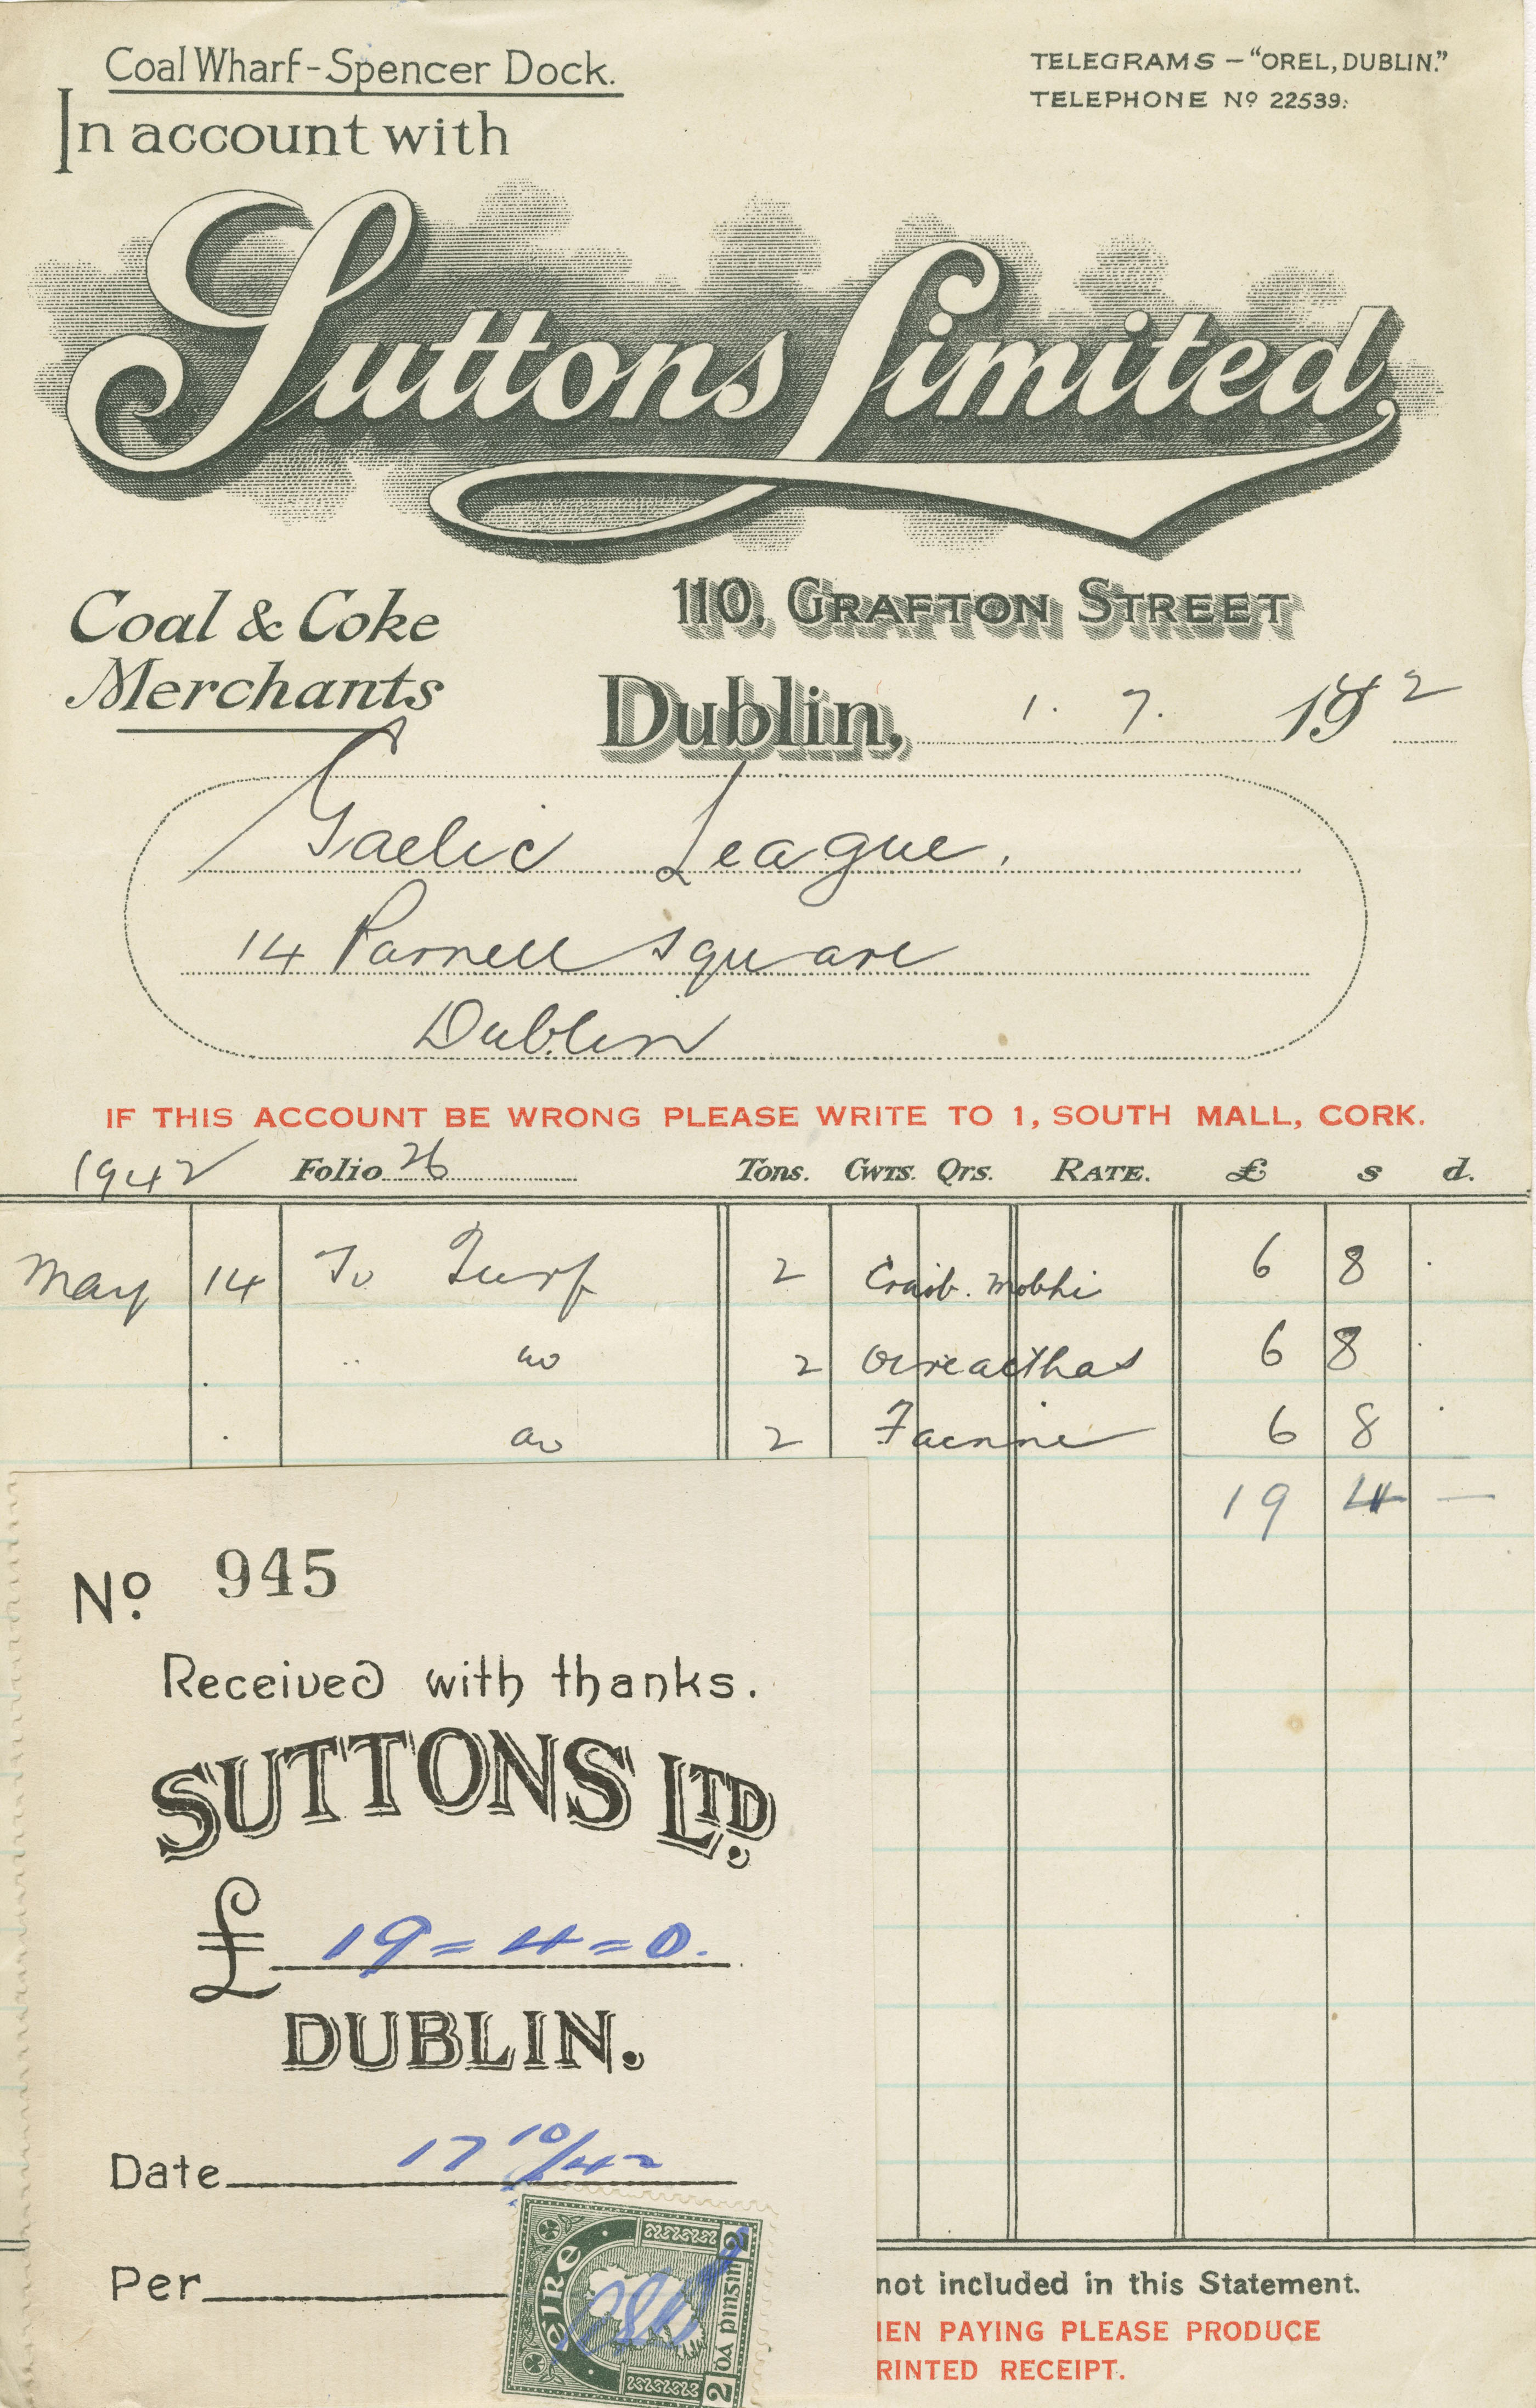 Coal Wharf-Spencer Dock.
TELEGRAMS – "OREL, DUBLIN."
TELEPHONE Nº 22539.
In account with
Suttons Limited.
Coal & Coke
Merchants
110, GRAFTON STREET
Dublin, 1. 7. 1942
Gaelic League.
14 Parnell Square
Dublin
IF THIS ACCOUNT BE WRONG PLEASE WRITE TO 1, SOUTH MALL, CORK.
1942 Folio 26 Tons. Cwts. Qrs. RATE. £ s d.
May 14 To Turf 2 Craob. Mobhi 6 8 .
. " do 2 Oireacthas 6 8 .
. do 2 Fáinne 6 8 .
19 4 —
Nº 945
Received with thanks.
SUTTONS LTD.
£ 19 = 4 = 0.
DUBLIN.
Date 17 10/42
Per
EIRE
2 DÁ PINSIN 2
not included in this Statement.
EN PAYING PLEASE PRODUCE
RINTED RECEIPT.